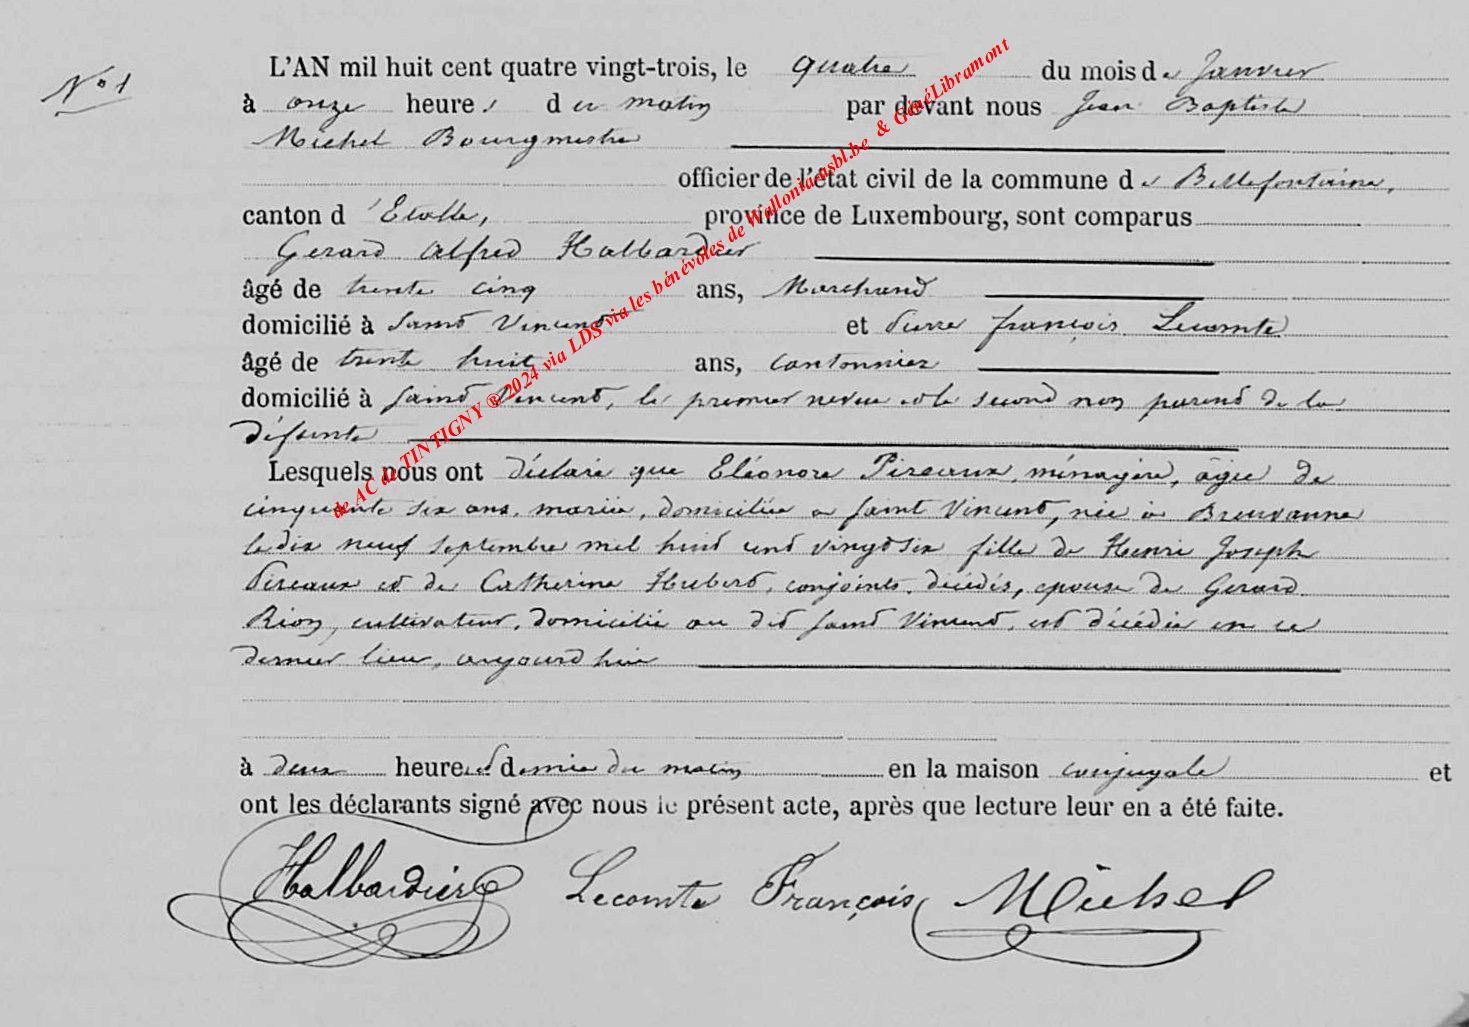 N° 1
L'AN mil huit cent quatre vingt-trois, le quatre du mois de Janvier
à onze heures du matin par devant nous Jean Baptiste
Michel Bourgmestre
officier de l'état civil de la commune de Bellefontaine,
canton d'Etalle, province de Luxembourg, sont comparus
Gerard Alfred Halbardier
âgé de trente cinq ans, Marchand
domicilié à Saint Vincent et Pierre françois Lecomte
âgé de trente huit ans, cantonnier
domicilié à Saint Vincent, le premier neveu et le second non parent de la
défunte
Lesquels nous ont déclaré que Eléonore Pireaux, ménagère, âgée de
cinquante six ans, mariée, domiciliée à Saint Vincent, née à Breuvanne
le dix neuf septembre mil huit cent vingt six fille de Henri Joseph
Pireaux et de Catherine Hubert, conjoints, décédés, épouse de Gerard
Rion, cultivateur, domicilié au dit Saint Vincent, est décédée en ce
dernier lieu, aujourd'hui
à deux heures et demie du matin en la maison conjugale et
ont les déclarants signé avec nous le présent acte, après que lecture leur en a été faite.
Halbardier Lecomte François Michel
de AC de TINTIGNY ® 2024 via LDS via les bénévoles de Wallonia-asbl.be & GénéLibramont